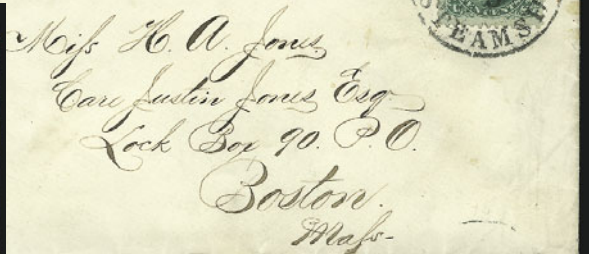 STEAMSH
Miſs H. A. Jones
Care Justin Jones Esq
Lock Box 90. P. O.
Boston.
Maſs-